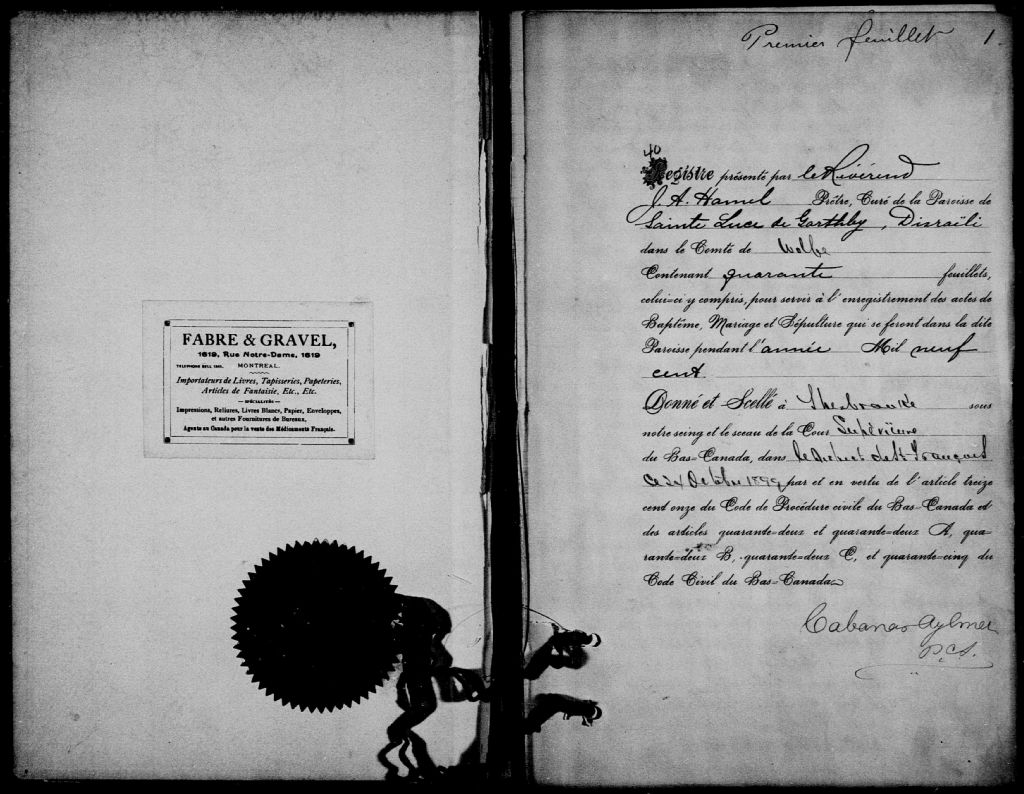 FABRE & GRAVEL,
1619, Rue Notre-Dame, 1619
TELEPHONE BELL MONTREAL.
Importateurs de Livres, Tapisseries, Papeteries,
Articles de Fantaisie, Etc., Etc.
SPÉCIALITÉS
Impressions, Reliures, Livres Blancs, Papier, Enveloppes,
et autres Fournitures de Bureaux,
Agents au Canada pour la vente des Médicaments Français.
Premier feuillet 1.
40
Registre présenté par le Révérend
J. A. Hamel Prêtre, Curé de la Paroisse de
Sainte Luce de Garthby, Disraëli
dans le Comté de Wolfe
Contenant quarante feuillets,
celui=ci y compris, pour servir à l'enregistrement des actes de
Baptême, Mariage et Sépulture qui se feront dans la dite
Paroisse pendant l'année Mil neuf
cent.
Donné et Scellé à Sherbrooke sous
notre seing et le sceau de la Cour Supérieure
du Bas=Canada, dans le district de St François
ce 24 Octobre 1899 par et en vertu de l'article treize
cent onze du Code de Procédure civile du Bas=Canada et
des articles quarante=deux et quarante=deux A, qua-
rante=deux B, quarante=deux C, et quarante=cinq du
Code Civil du Bas=Canada
Cabana & Aylmer
P.C.S.